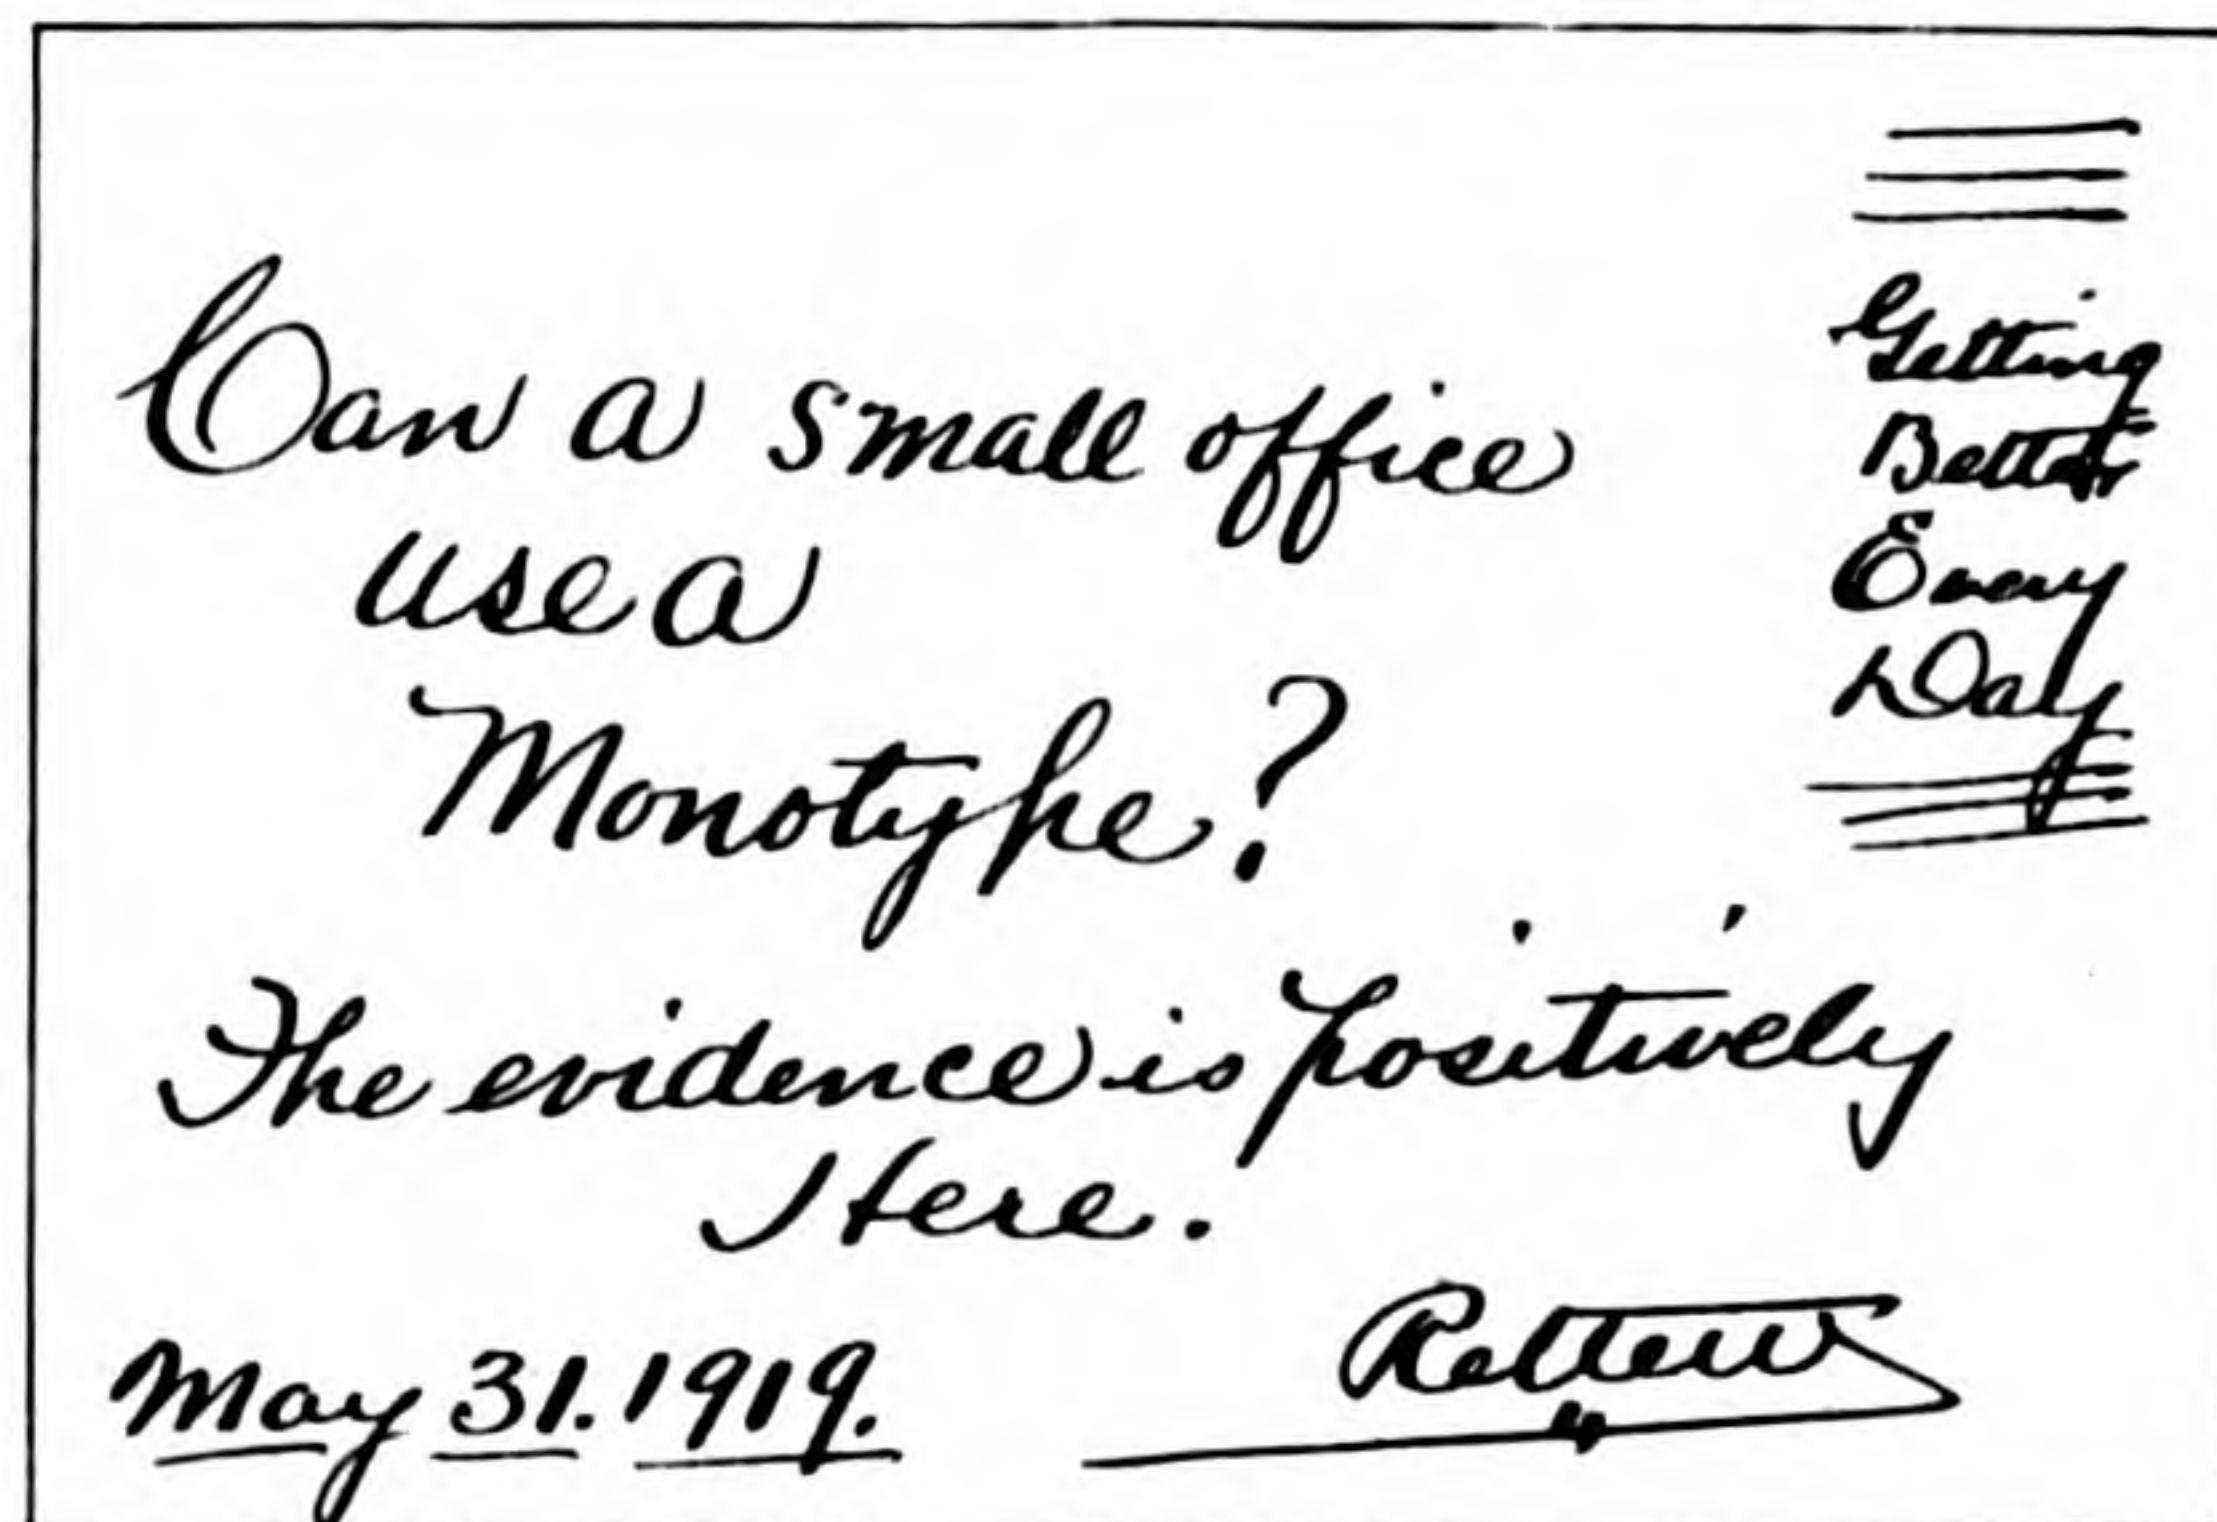 Can a small office
use a
Monotype?
Getting
Better
Every
Day
The evidence is positively
Here.
May 31. 1919.
Rettew